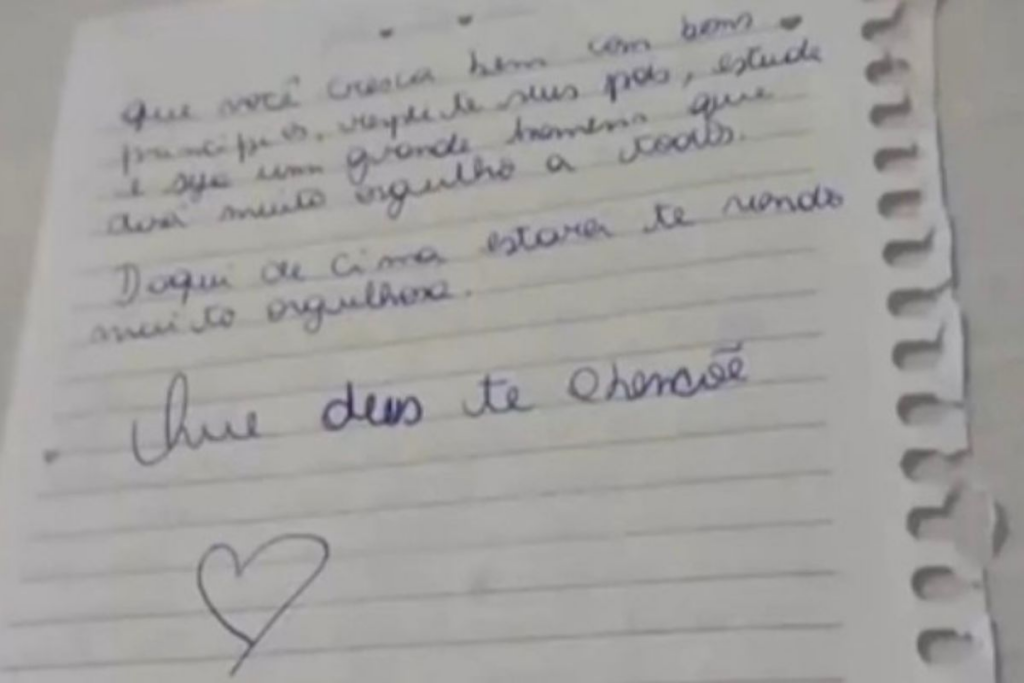 que você cresca bem com bons
principios, respeite seus pais, estude
e seja um grande homem que
dará muito orgulho a todos.
Daqui de cima estarei te vendo
muito orgulhosa.
Que deus te abencoê